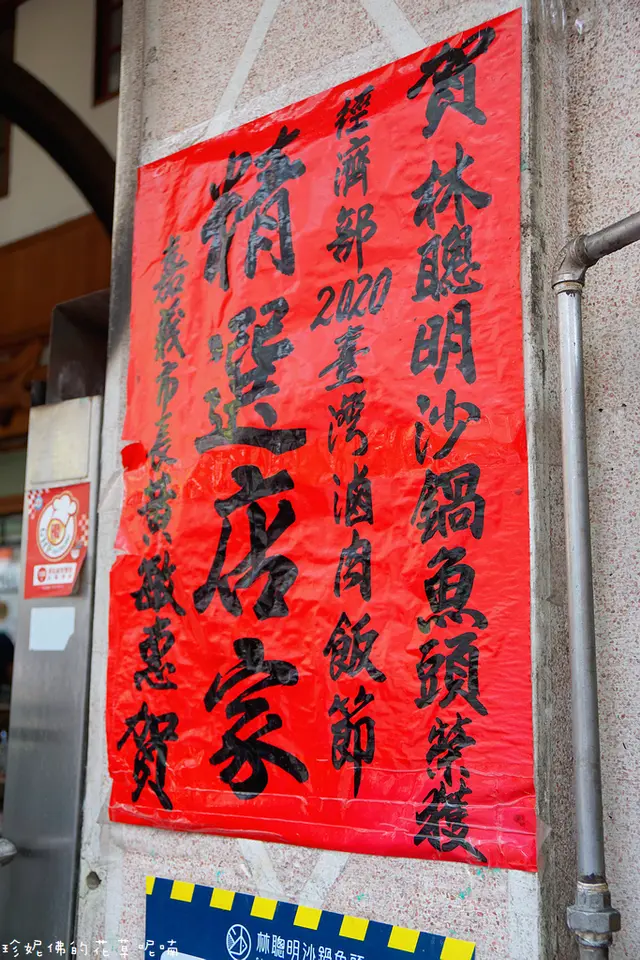 賀林聰明沙鍋魚頭榮獲
經濟部2020臺灣滷肉飯節
精選店家
嘉義市長黃敏惠賀
林聰明沙鍋魚頭
珍妮佛的花草呢喃